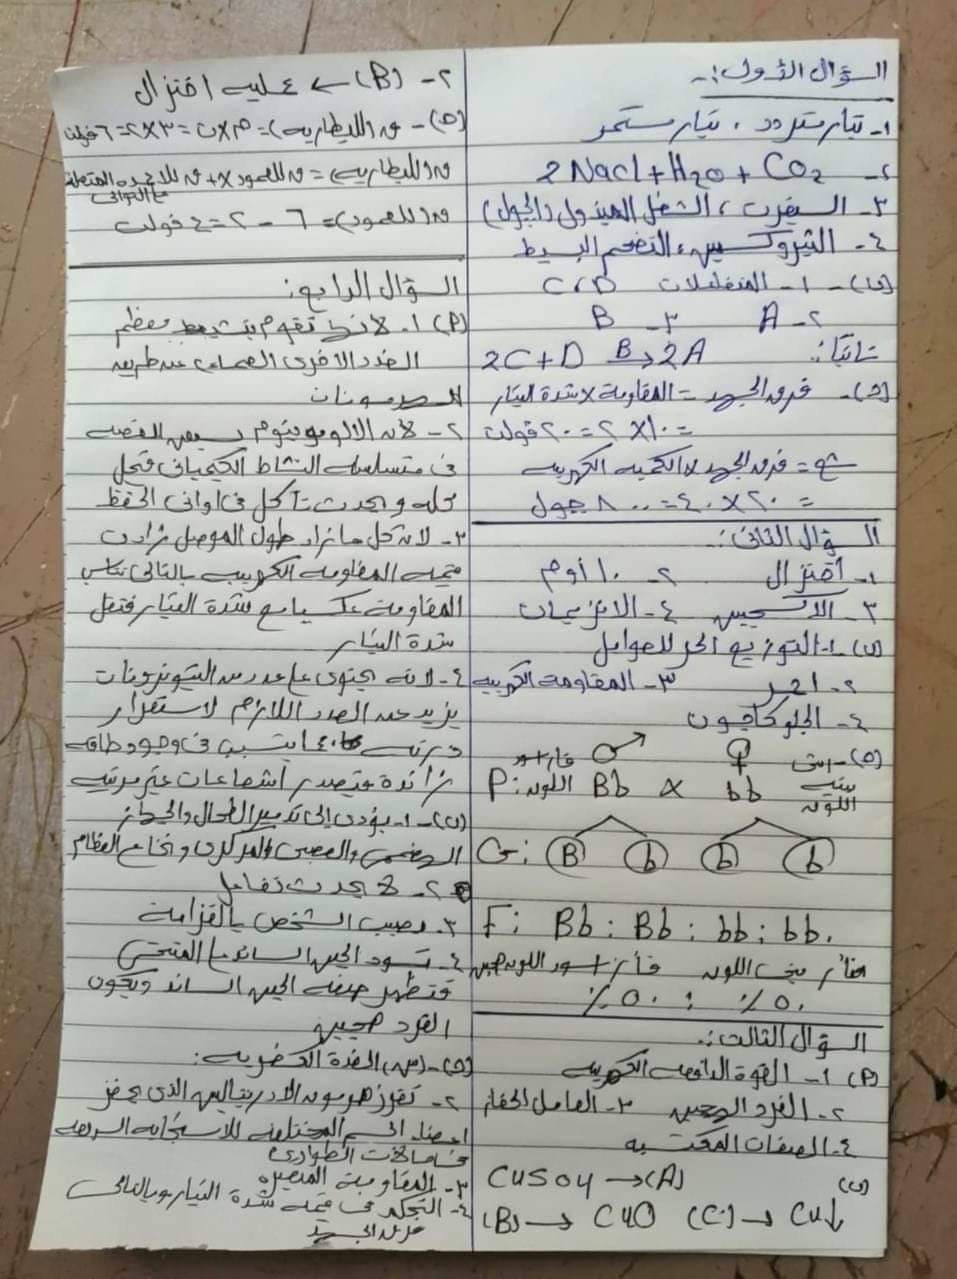 السؤال الأول:-
١- تيار متردد ، تيار مستمر
٢- 2Nacl + H₂O + CO₂
٣- السيفرت ، الشغل المبذول (الجول)
٤- الثيروكسين ، التضخم البسيط
(ب) - ١- المتفاعلات C, D
٢- A ٣- B
ثانيًا: 2C + D B→ 2A
(ج)- فرق الجهد = المقاومة × شدة التيار
= ١٠ × ٢ = ٢٠ فولت
شغ = فرق الجهد × الكمية الكهربية
= ٢٠ × ٤٠ = ٨٠٠ جول
السؤال الثانى:-
١- أختزال ٢- ١٠ أوم
٣- الأكسجين ٤- الانزيمات
(ب) - ١- التوزيع الحر للعوامل
٢- احمر ٣- المقاومة الكهربية
٤- الجلوكاجون
(ج)- انثى ♀ ♂ فأر اسود
بنية اللون bb × Bb اللون :P
G: B b b b
F: Bb : Bb : bb : bb.
فأر بنى اللون فأر اسود اللون هجين
٥٠٪ : ٥٠٪
السؤال الثالث:-
(أ) ١- القوة الدافعة الكهربية
٢- الفرد الهجين ٣- العامل الحفاز
٤- الصفات المكتسبة
(ب) CuSO4 → (A)
(B) → CuO (C) → Cu↓
٢- (B) ← عملية اختزال
(ج)- ق (البطارية) = ٣ × ن = ٣ × ٢ = ٦ فولت
ق (البطارية) = ق للعمود x + ق للاعمدة المتصلة
مع التوالى
ق (للعمود) = ٦ - ٢ = ٤ فولت
السؤال الرابع:
(أ) ١. لأنها تقوم بتنشيط معظم
الغدد الاخرى الصماء عن طريق
الهرمونات
٢- لأن الالومونيوم يسبق الفضة
فى متسلسلة النشاط الكيميائى فيحل
محله ويحدث تآكل فى اوانى الحفظ
٣- لانه كل ما زاد طول الموصل زادت
قيمة المقاومة الكهربية بالتالى تناسب
المقاومة عكسيا مع شدة التيار فتقل
شدة التيار
٤- لانه يحتوى على عدد من النيوترونات
يزيد عن العدد اللازم لاستقرار
ذرته مما يتسبب فى وجود طاقة
زائدة فتصدر اشعاعات غير مرئية
(ب) - ١- يؤدى إلى تدمير الطحال والجهاز
الهضمى والعصبى المركزى ونخاع العظام
٢- لا يحدث تفاعل
٣- يصيب الشخص بالقزامة
٤- تسود الجين السائد مع المتنحى
فتظهر صفة الجين السائد ويكون
الفرد هجين
(ج)- (س) الغدة الكظرية:
٢- تفرز هرمون الادرينالين الذى يحفز
اعضاء الجسم المختلفة للاستجابة السريعة
فى حالات الطوارئ
٣- المقاومة المتغيرة
٤- التحكم فى قيمة شدة التيار وبالتالى
فرق الجهد